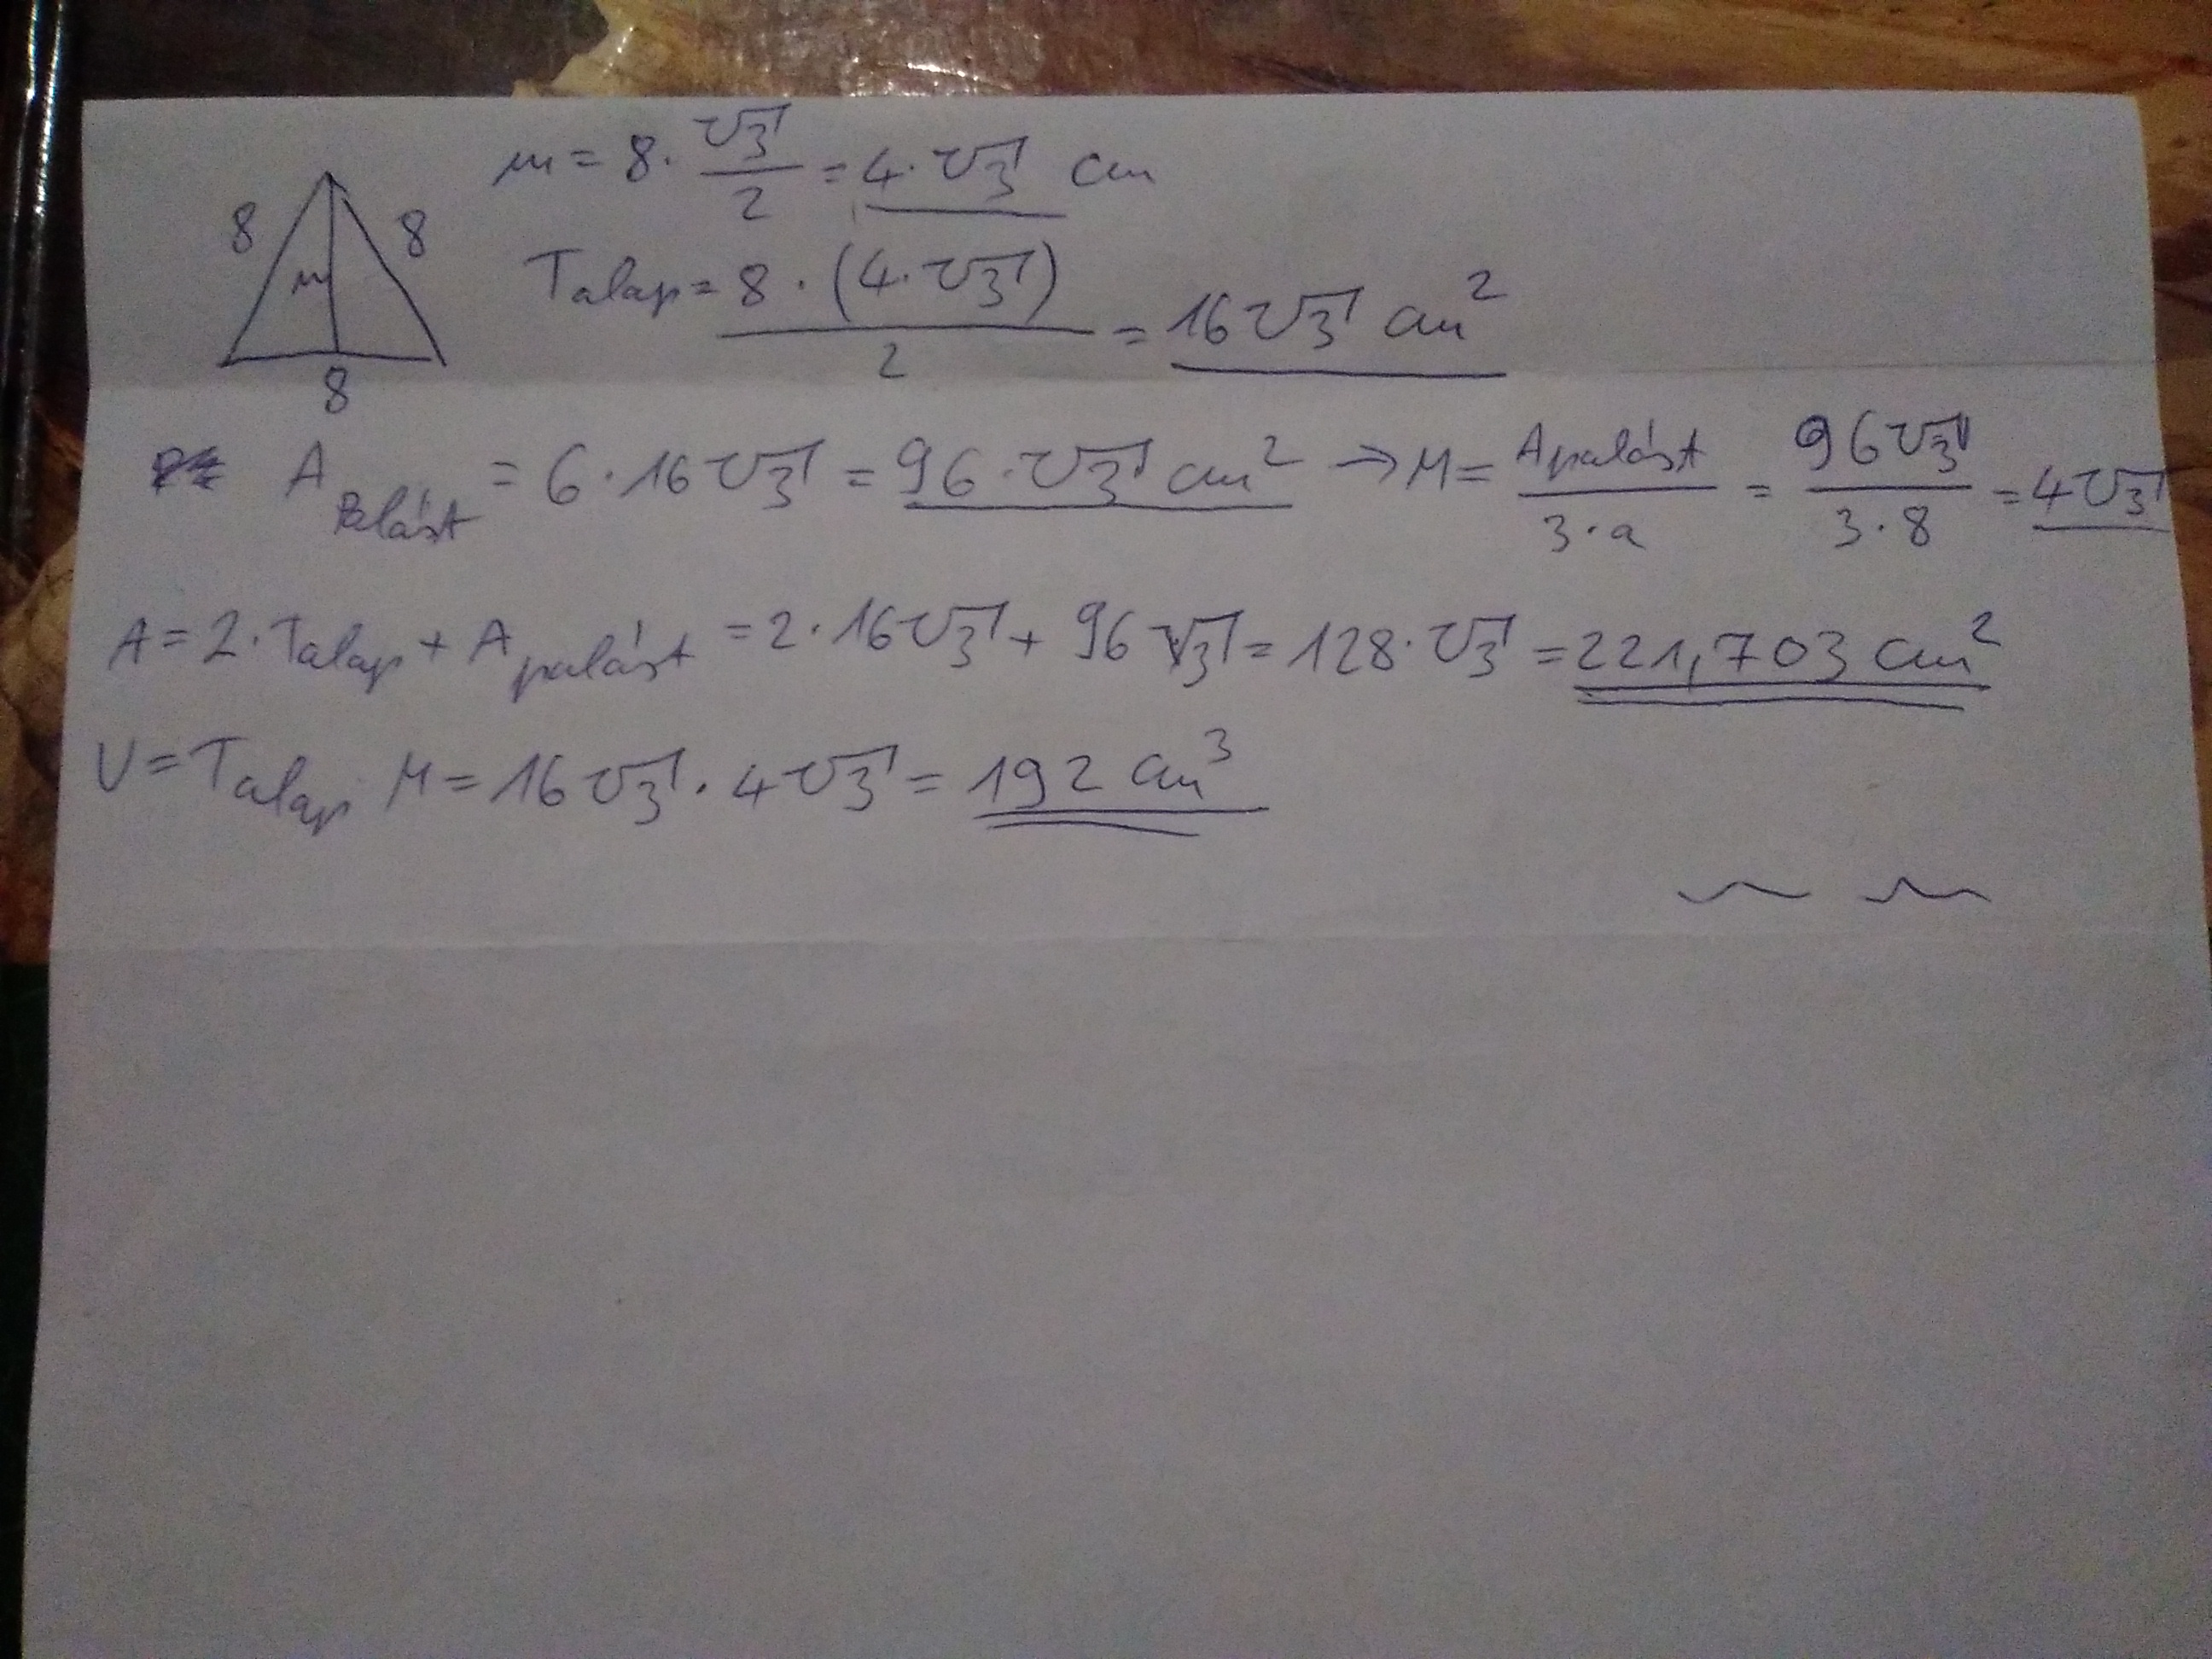 m = 8 · √3/2 = 4 · √3 cm
8 8
m
8
Talap = 8 · (4 · √3)/2 = 16√3 cm²
A Palást = 6 · 16√3 = 96 · √3 cm² → M = A palást/3 · a = 96√3/3 · 8 = 4√3
A = 2 · Talap + A palást = 2 · 16√3 + 96√3 = 128 · √3 = 221,703 cm²
V = Talap M = 16√3 · 4√3 = 192 cm³